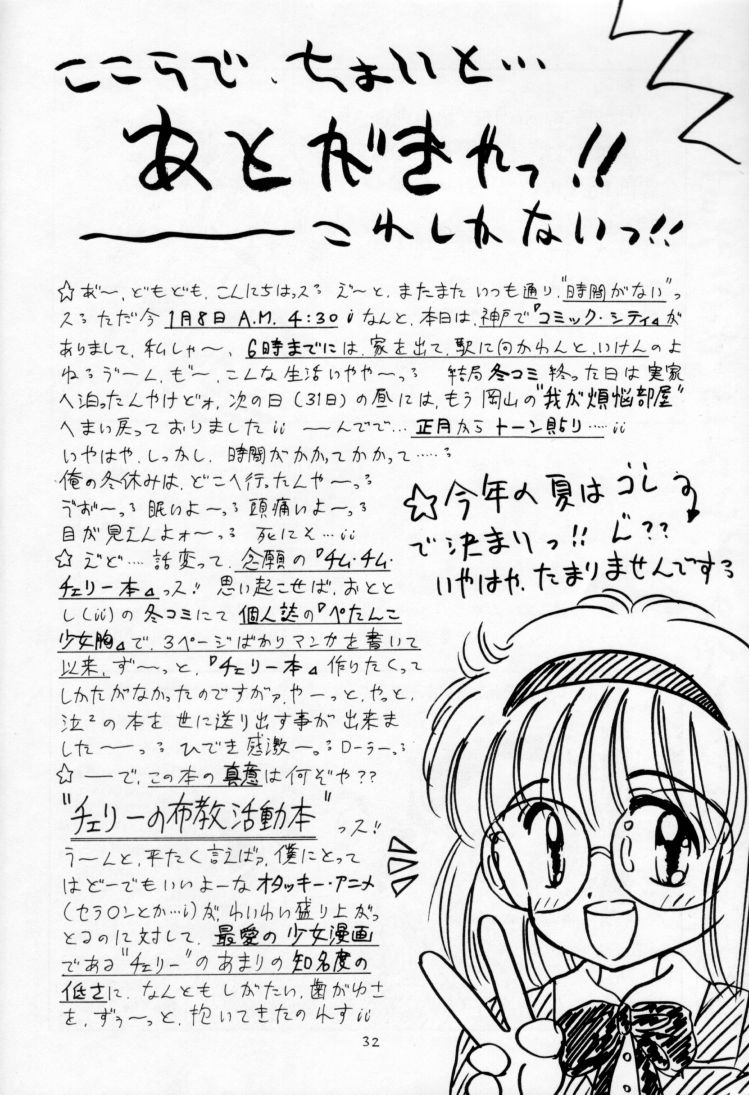 ここらで、ちょいと…
あとがきやっ!!
これしかないっ!!
☆あ゛〜、どもども、こんにちはっスる え゛〜と、またまた いつも通り、"時間がない"っ
スる ただ今 1月8日 A.M. 4:30 i なんと、本日は、神戸で『コミック・シティ』が
ありまして、私しゃ〜、6時までには、家を出て、駅に向かわんと、いけんのよ
ねる う゛〜ん、も゛〜、こんな生活いやや〜っる 結局 冬コミ 終った日は 実家
へ泊ったんやけどォ、次の日(31日)の昼には、もう 岡山の"我が煩悩部屋"
へまい戻って おりました ii 〜んでで… 正月から トーン貼り…‥ii
いやはや、しっかし、時間がかかってかかって……る
俺の冬休みは、どこへ行ったんや〜っる
う゛お゛〜っる 眠いよ〜っる 頭痛いよ〜っる
目が見えんよォ〜っる 死にそ…ii
☆今年の夏は コレ る
で決まりっ!! ど??
いやはや、たまりませんでする
☆え゛ど… 話変って、念願の『チム・チム・
チェリー本』っス!! 思い起こせば、おとと
し(ii)の 冬コミにて 個人誌の『ぺたんこ
少女胸』で、3ページばかりマンガを書いて
以来、ず〜っと、『チェリー本』作りたくって
しかたがなかったのですがァ、やーっと、やっと、
泣²の本を 世に送り出す事が 出来ま
した〜っる ひでき 感激〜。る ローラー。る
☆ーで、この本の真意は何ぞや??
"チェリーの布教活動本"っス!!
う〜んと、平たく言えばァ、僕にとって
はどーでもいいよーな オタッキー・アニメ
(セラ○ンとか…i)が、わいわい盛り上がっ
とるのに対して、最愛の少女漫画
である"チェリー"の あまりの 知名度の
低さに、なんとも しがたい、歯がゆさ
を、ずぅ〜っと、抱いてきたのれす ii
32